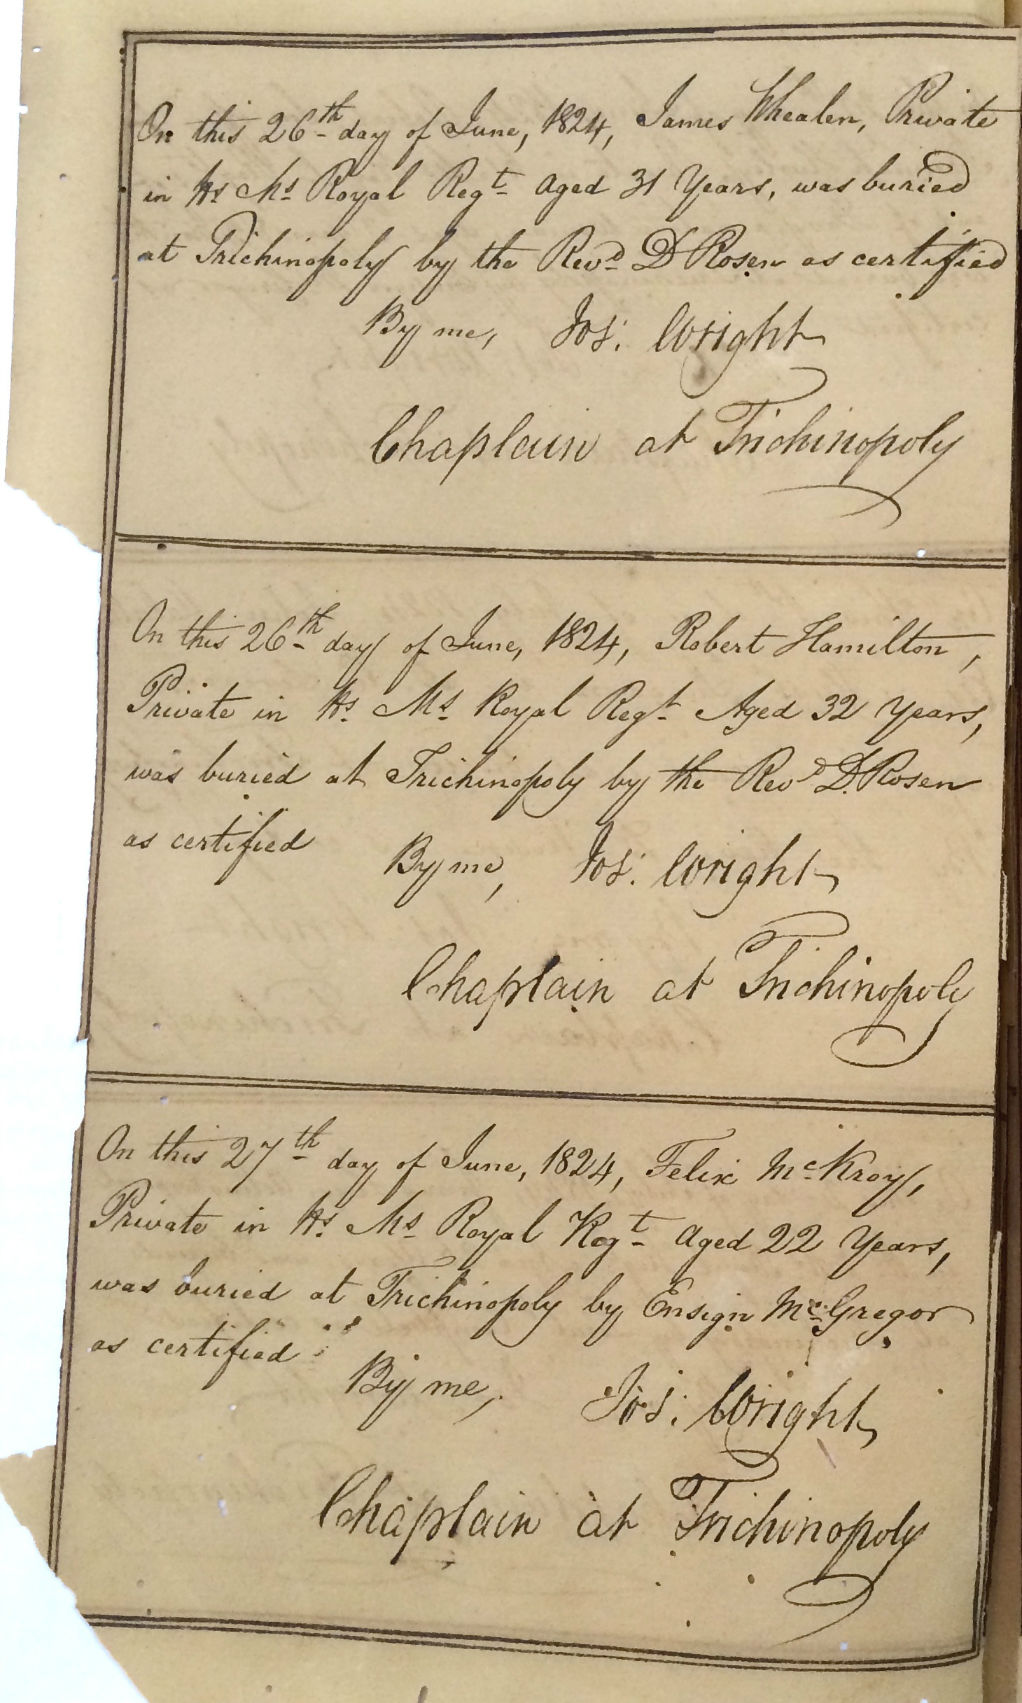 On this 26th day of June, 1824, James Whealen, Private
in Hs Ms Royal Regt aged 31 Years, was buried
at Trichinopoly by the Revd D Rosen as certified
By me, Jos: Wright
Chaplain at Trichinopoly
On this 26th day of June, 1824, Robert Hamilton,
Private in Hs Ms Royal Regt Aged 32 Years,
was buried at Trichinopoly by the Revd D. Rosen
as certified
By me, Jos: Wright
Chaplain at Trichinopoly
On this 27th day of June, 1824, Felix McKroy,
Private in Hs Ms Royal Regt aged 22 Years,
was buried at Trichinopoly by Ensign McGregor
as certified
By me, Jos: Wright
Chaplain at Trichinopoly